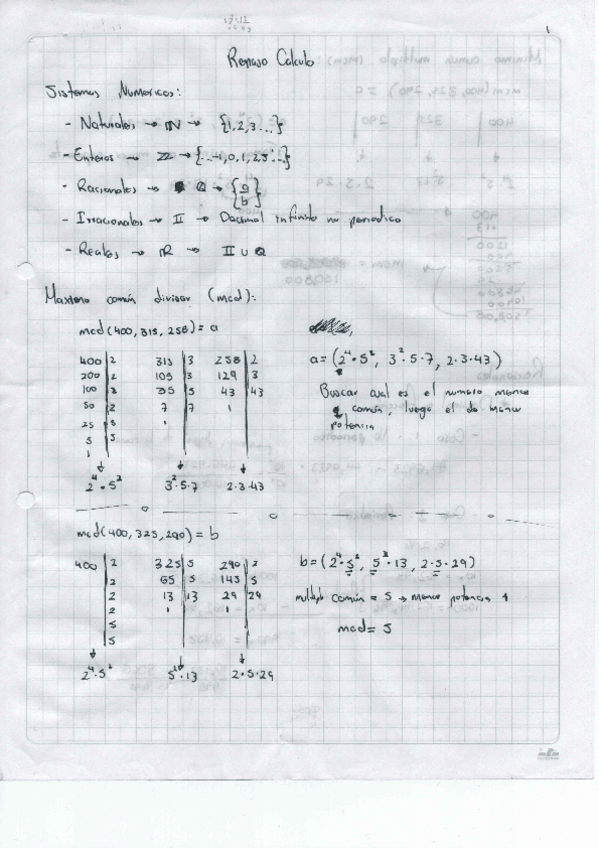 1
Repaso Calculo
Sistemas Numericos:
- Naturales → ℕ → {1,2,3...}
- Enteros → ℤ → {..-1,0,1,2,3...}
- Racionales → Q → {a/b}
- Irracionales → II → Decimal infinito no periodico
- Reales → ℝ → II ∪ Q
Maximo común divisor (mcd):
mcd(400, 315, 258) = a
400 | 2 315 | 3 258 | 2
200 | 2 105 | 3 129 | 3
100 | 2 35 | 5 43 | 43
50 | 2 7 | 7 1
25 | 5 1
5 | 5
1
2⁴·5² 3²·5·7 2·3·43
a = (2⁴·5², 3²·5·7, 2·3·43)
Buscar cual es el numero menor
común, luego el de menor
potencia
mcd(400, 325, 290) = b
400 | 2 325 | 5 290 | 2
2 65 | 5 145 | 5
2 13 | 13 29 | 29
2 1 1
5
5
2⁴·5² 5²·13 2·5·29
b = (2⁴·5², 5²·13, 2·5·29)
multiplo común = 5 → menor potencia 1
mcd = 5